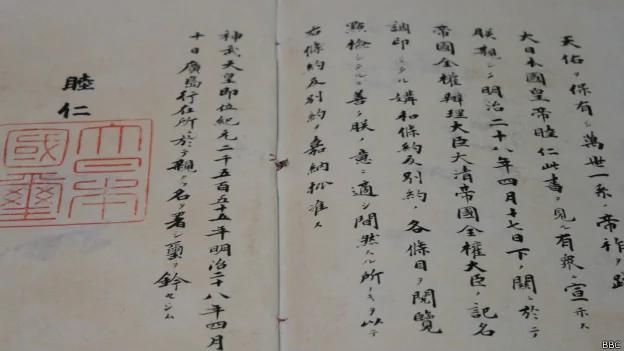 天佑ヲ保有シ萬世一系ノ帝祚ヲ
大日本國皇帝睦仁此書ヲ見ル有衆ニ宣示ス
朕親シク明治二十八年四月十七日下ノ關ニ於テ
帝國全權辨理大臣大清帝國全權大臣ノ記名
調印シタル媾和條約及別約ノ各條目ヲ閲覽
點檢シタルニ善ク朕ノ意ニ適シ間然スル所ナキヲ以テ
右條約及別約ヲ嘉納批准ス
神武天皇即位紀元二千五百五十五年明治二十八年四月
十日廣島行在所ニ於テ親ラ名ヲ署シ璽ヲ鈐セシム
睦仁
大日本
國璽
BBC